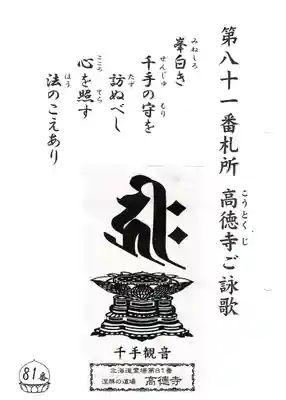 第八十一番札所 高徳寺ご詠歌
こうとくじ
峯白き
みねしろ
千手の守を
せんじゅ もり
訪ぬべし
たず
心を照す
こころ てら
法のこえあり
ほう
千手観音
北海道霊場第81番
涅槃の道場 高徳寺
81番